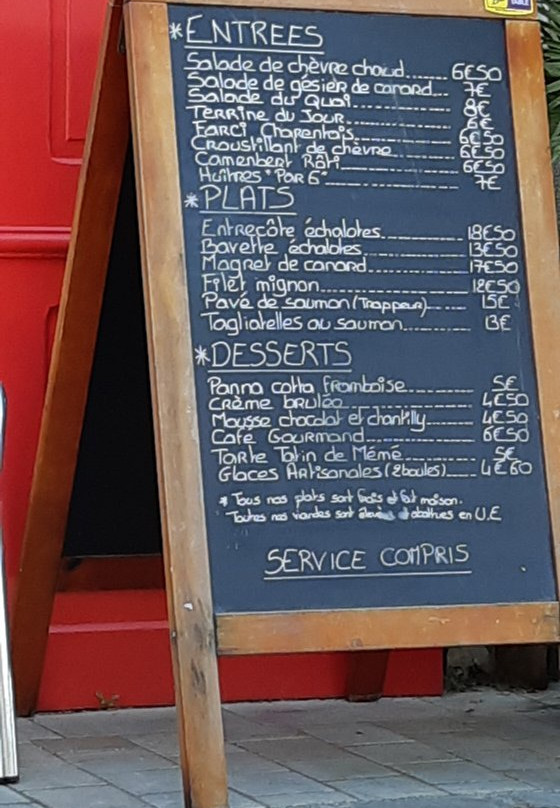 *ENTREES
Salade de chèvre chaud....... 6€50
Salade de gésier de canard... 7€
Salade du Quai.............. 8€
Terrine du Jour............. 6€
Farci Charentais............ 6€50
Croustillant de chèvre...... 6€50
Camenbert Rôti.............. 6€50
Huîtres "Par 6"............. 7€
*PLATS
Entrecôte échalotes......... 18€50
Bavette échalotes........... 13€50
Magret de canard............ 17€50
Filet mignon................ 12€50
Pavé de saumon (Trappeur)... 15€
Tagliatelles au saumon...... 13€
*DESSERTS
Panna cotta framboise....... 5€
Crème brulée................ 4€50
Mousse chocolat et chantilly... 4€50
Café Gourmand............... 6€50
Tarte Tatin de Mémé......... 5€
Glaces Artisanales (2 boules)... 4€60
* Tous nos plats sont frais et fait maison.
Toutes nos viandes sont élevées et abattues en U.E
SERVICE COMPRIS